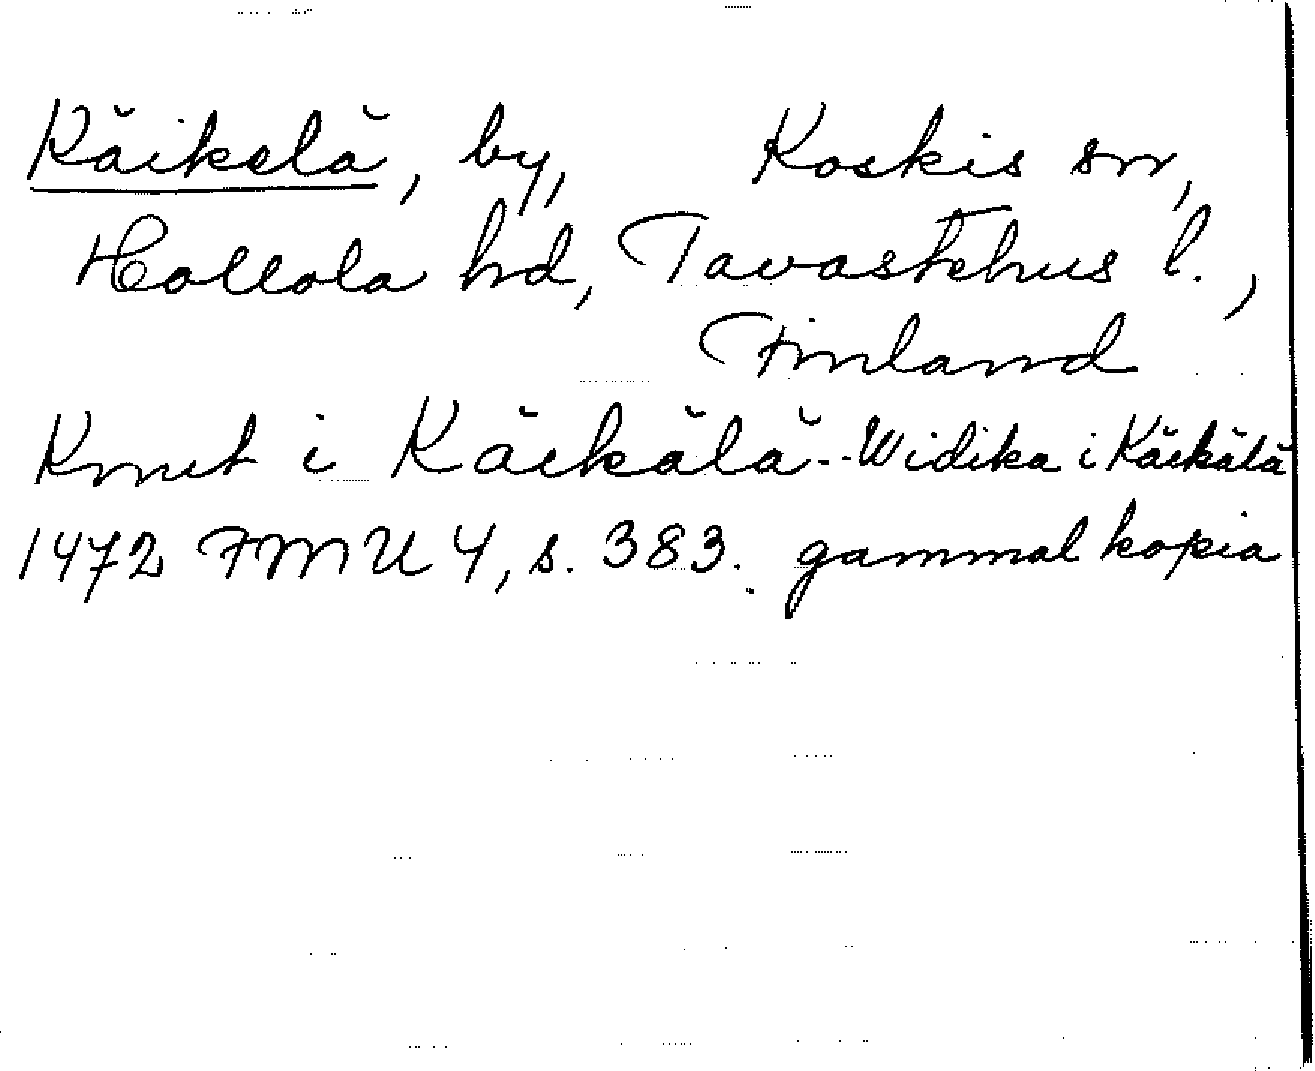 Käikelä, by, Koskis sn,
Hollola hd, Tavastehus l.,
Finland
Knut i Käekälä -- Widika i Käekälä
1472 FMU 4, s. 383. gammal kopia